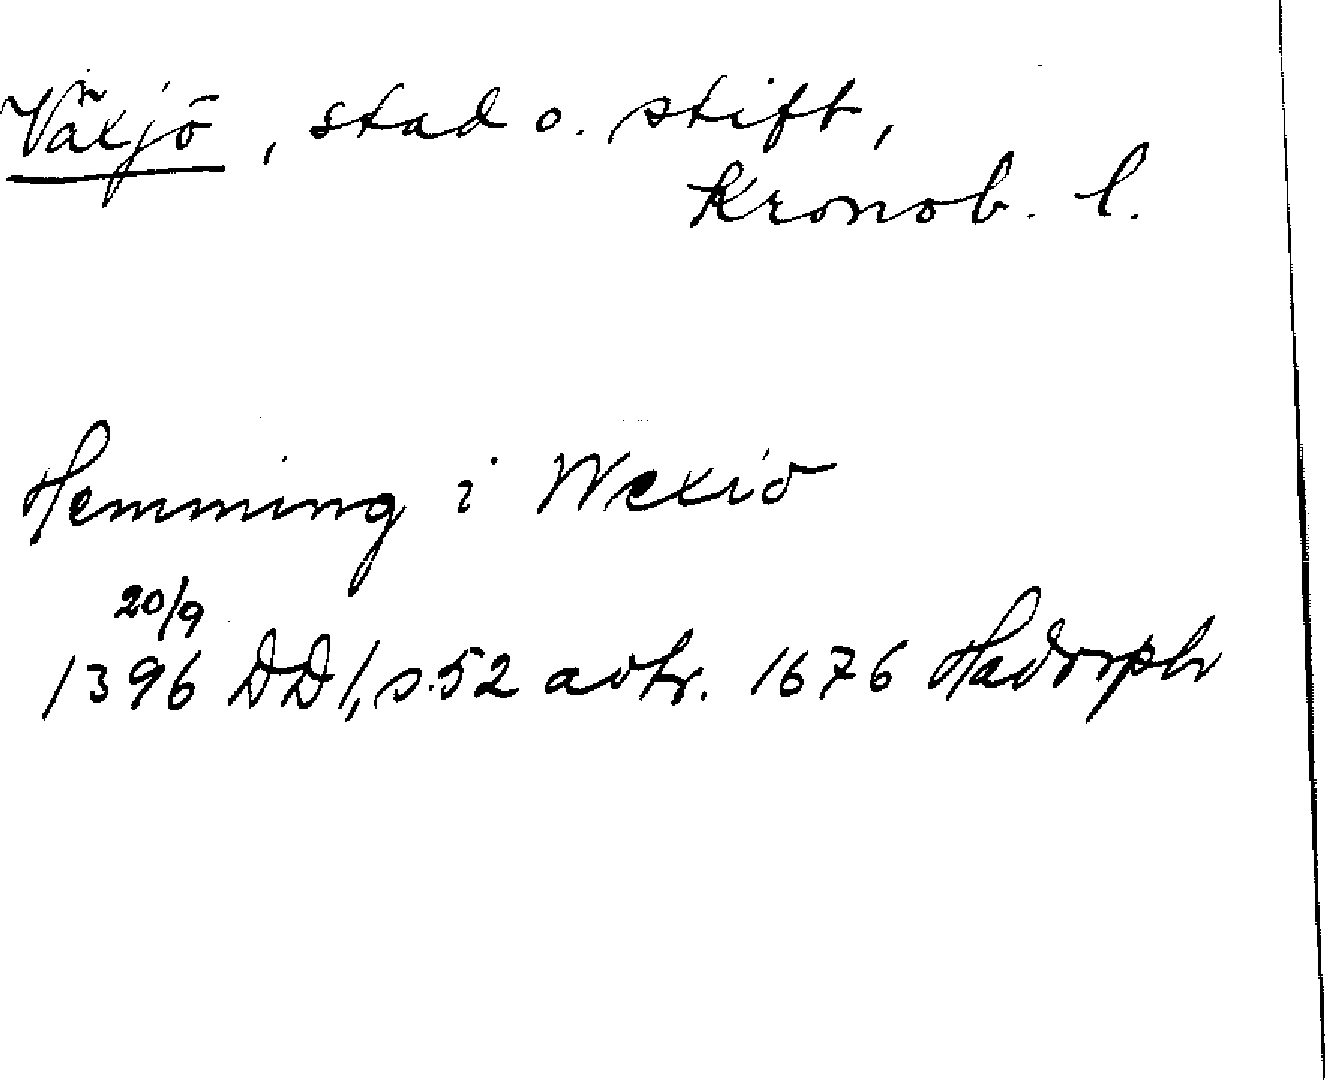 Växjö, stad o. stift,
Kronob. l.
Hemming i Wexiö
20/9
1396 DD 1, s. 52 avkr. 1676 Hadorph